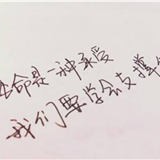 生命是一种承受
我们要学会支撑